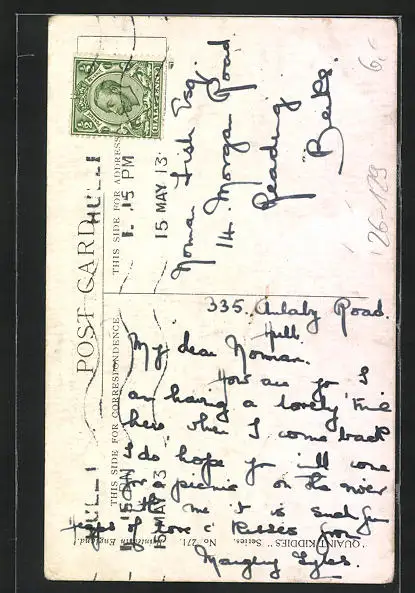 POST CARD
THIS SIDE FOR CORRESPONDENCE
THIS SIDE FOR ADDRESS
HULL
1. 15 PM
15 MAY 13
HULL
1. 15 PM
15 MAY 13
HALFPENNY
Norman Fish Esq.
14. Morgan Road
Reading
Berks.
335. Anlaby Road.
Hull.
My dear Norman.
How are yo I
am having a lovely time
here when I come back
I do hope yo will come
for a picnic on the river
with me it is such fun
Heaps of love & kisses from
Margery
"QUAINT KIDDIES" Series. No. 271. Printed in England.
26-189
6,-